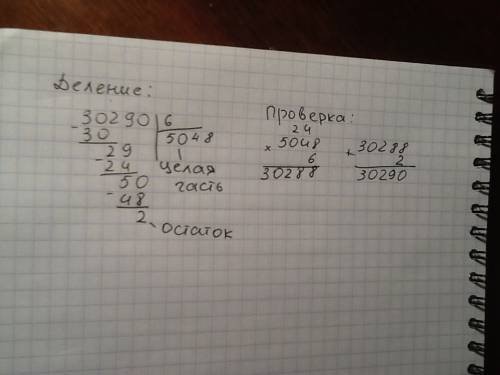 Деление:
- 30290 | 6
30 5048
29 целая
- 24 часть
50
- 48
2 остаток
Проверка:
24
× 5048
6
30288
+ 30288
2
30290